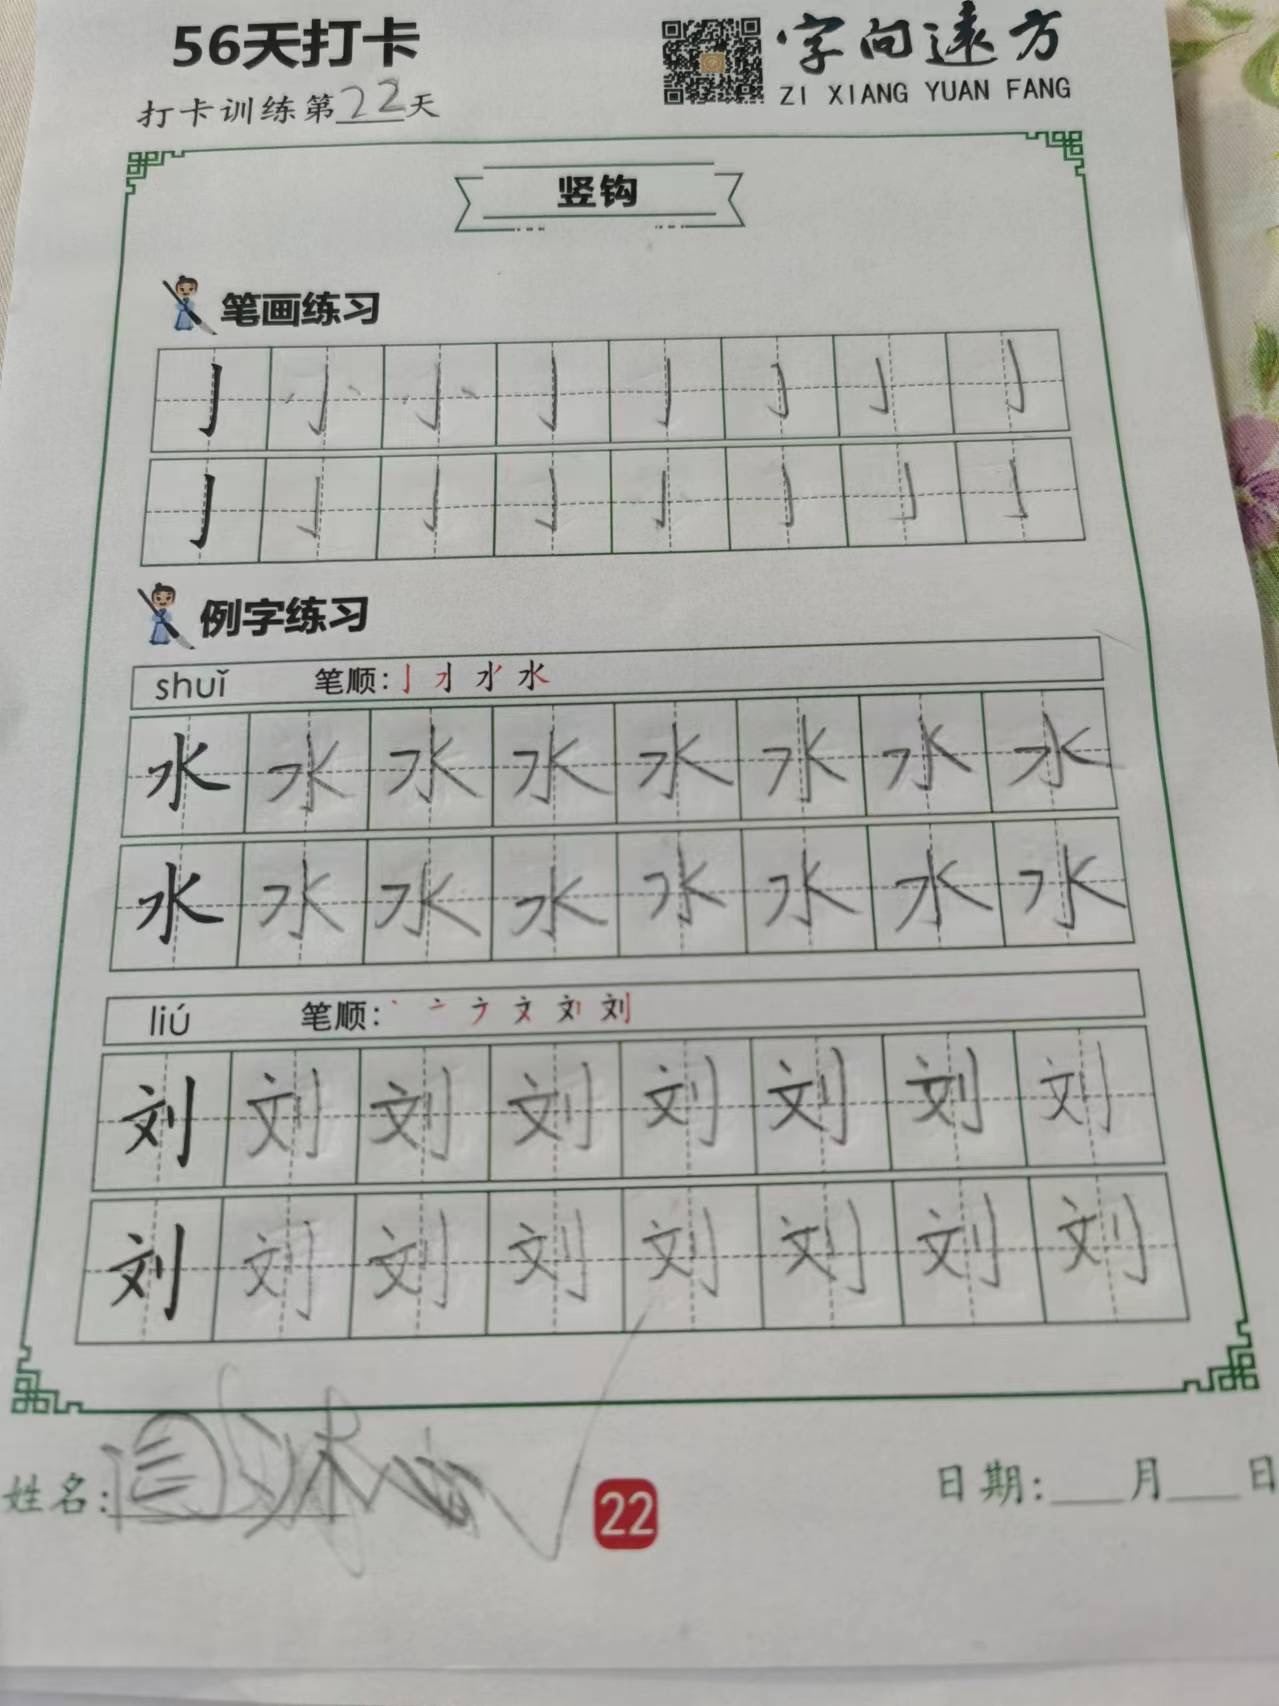 56天打卡
字向遠方
ZI XIANG YUAN FANG
打卡训练第22天
竖钩
笔画练习
亅 小 小 亅 亅 亅 亅 亅
亅 亅 亅 亅 亅 亅 亅 亅
例字练习
shuǐ 笔顺: 水
水 水 水 水 水 水 水 水
水 水 水 水 水 水 水 水
liú 笔顺: 丶 亠 文 刘
刘 刘 刘 刘 刘 刘 刘 刘
刘 刘 刘 刘 刘 刘 刘 刘
姓名:
22
日期: 月 日